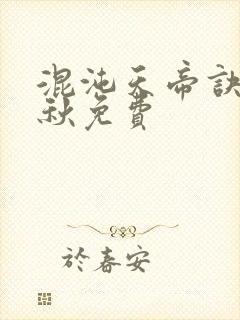 混沌天帝訣
秋免費
於春安